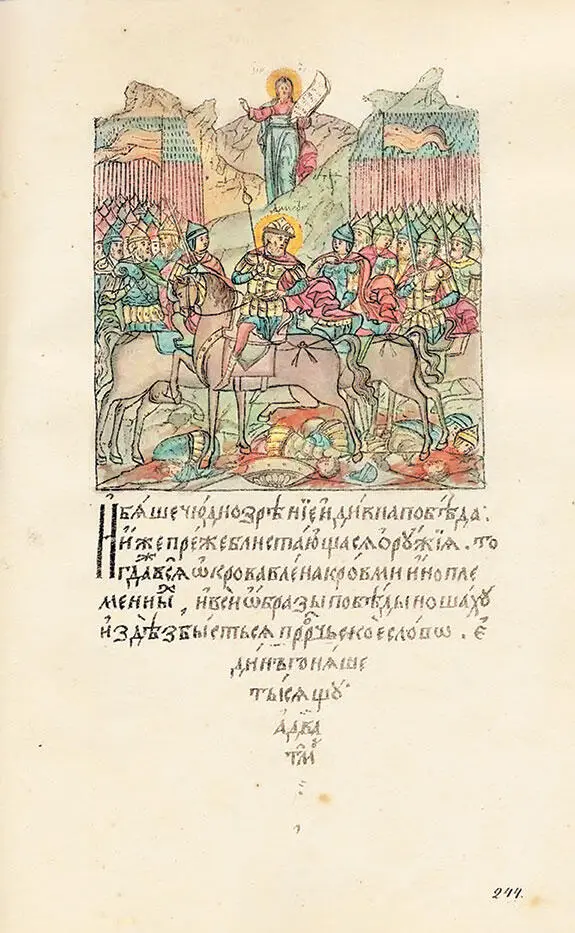 И бѧше чюдно зрѣнїе и дивна побѣда.
иже преже блистающасѧ ѻрꙋжїѧ. то
гдаⷤ всѧ ѡкровавлена кровми инопле
менныⷯ, и вси ѡбразы побѣды ношахꙋ
и здѣ збыстьсѧ прⷪрчьское слово. е
динъ гонѧше
тысѧщꙋ
а два
тмꙋ
244.